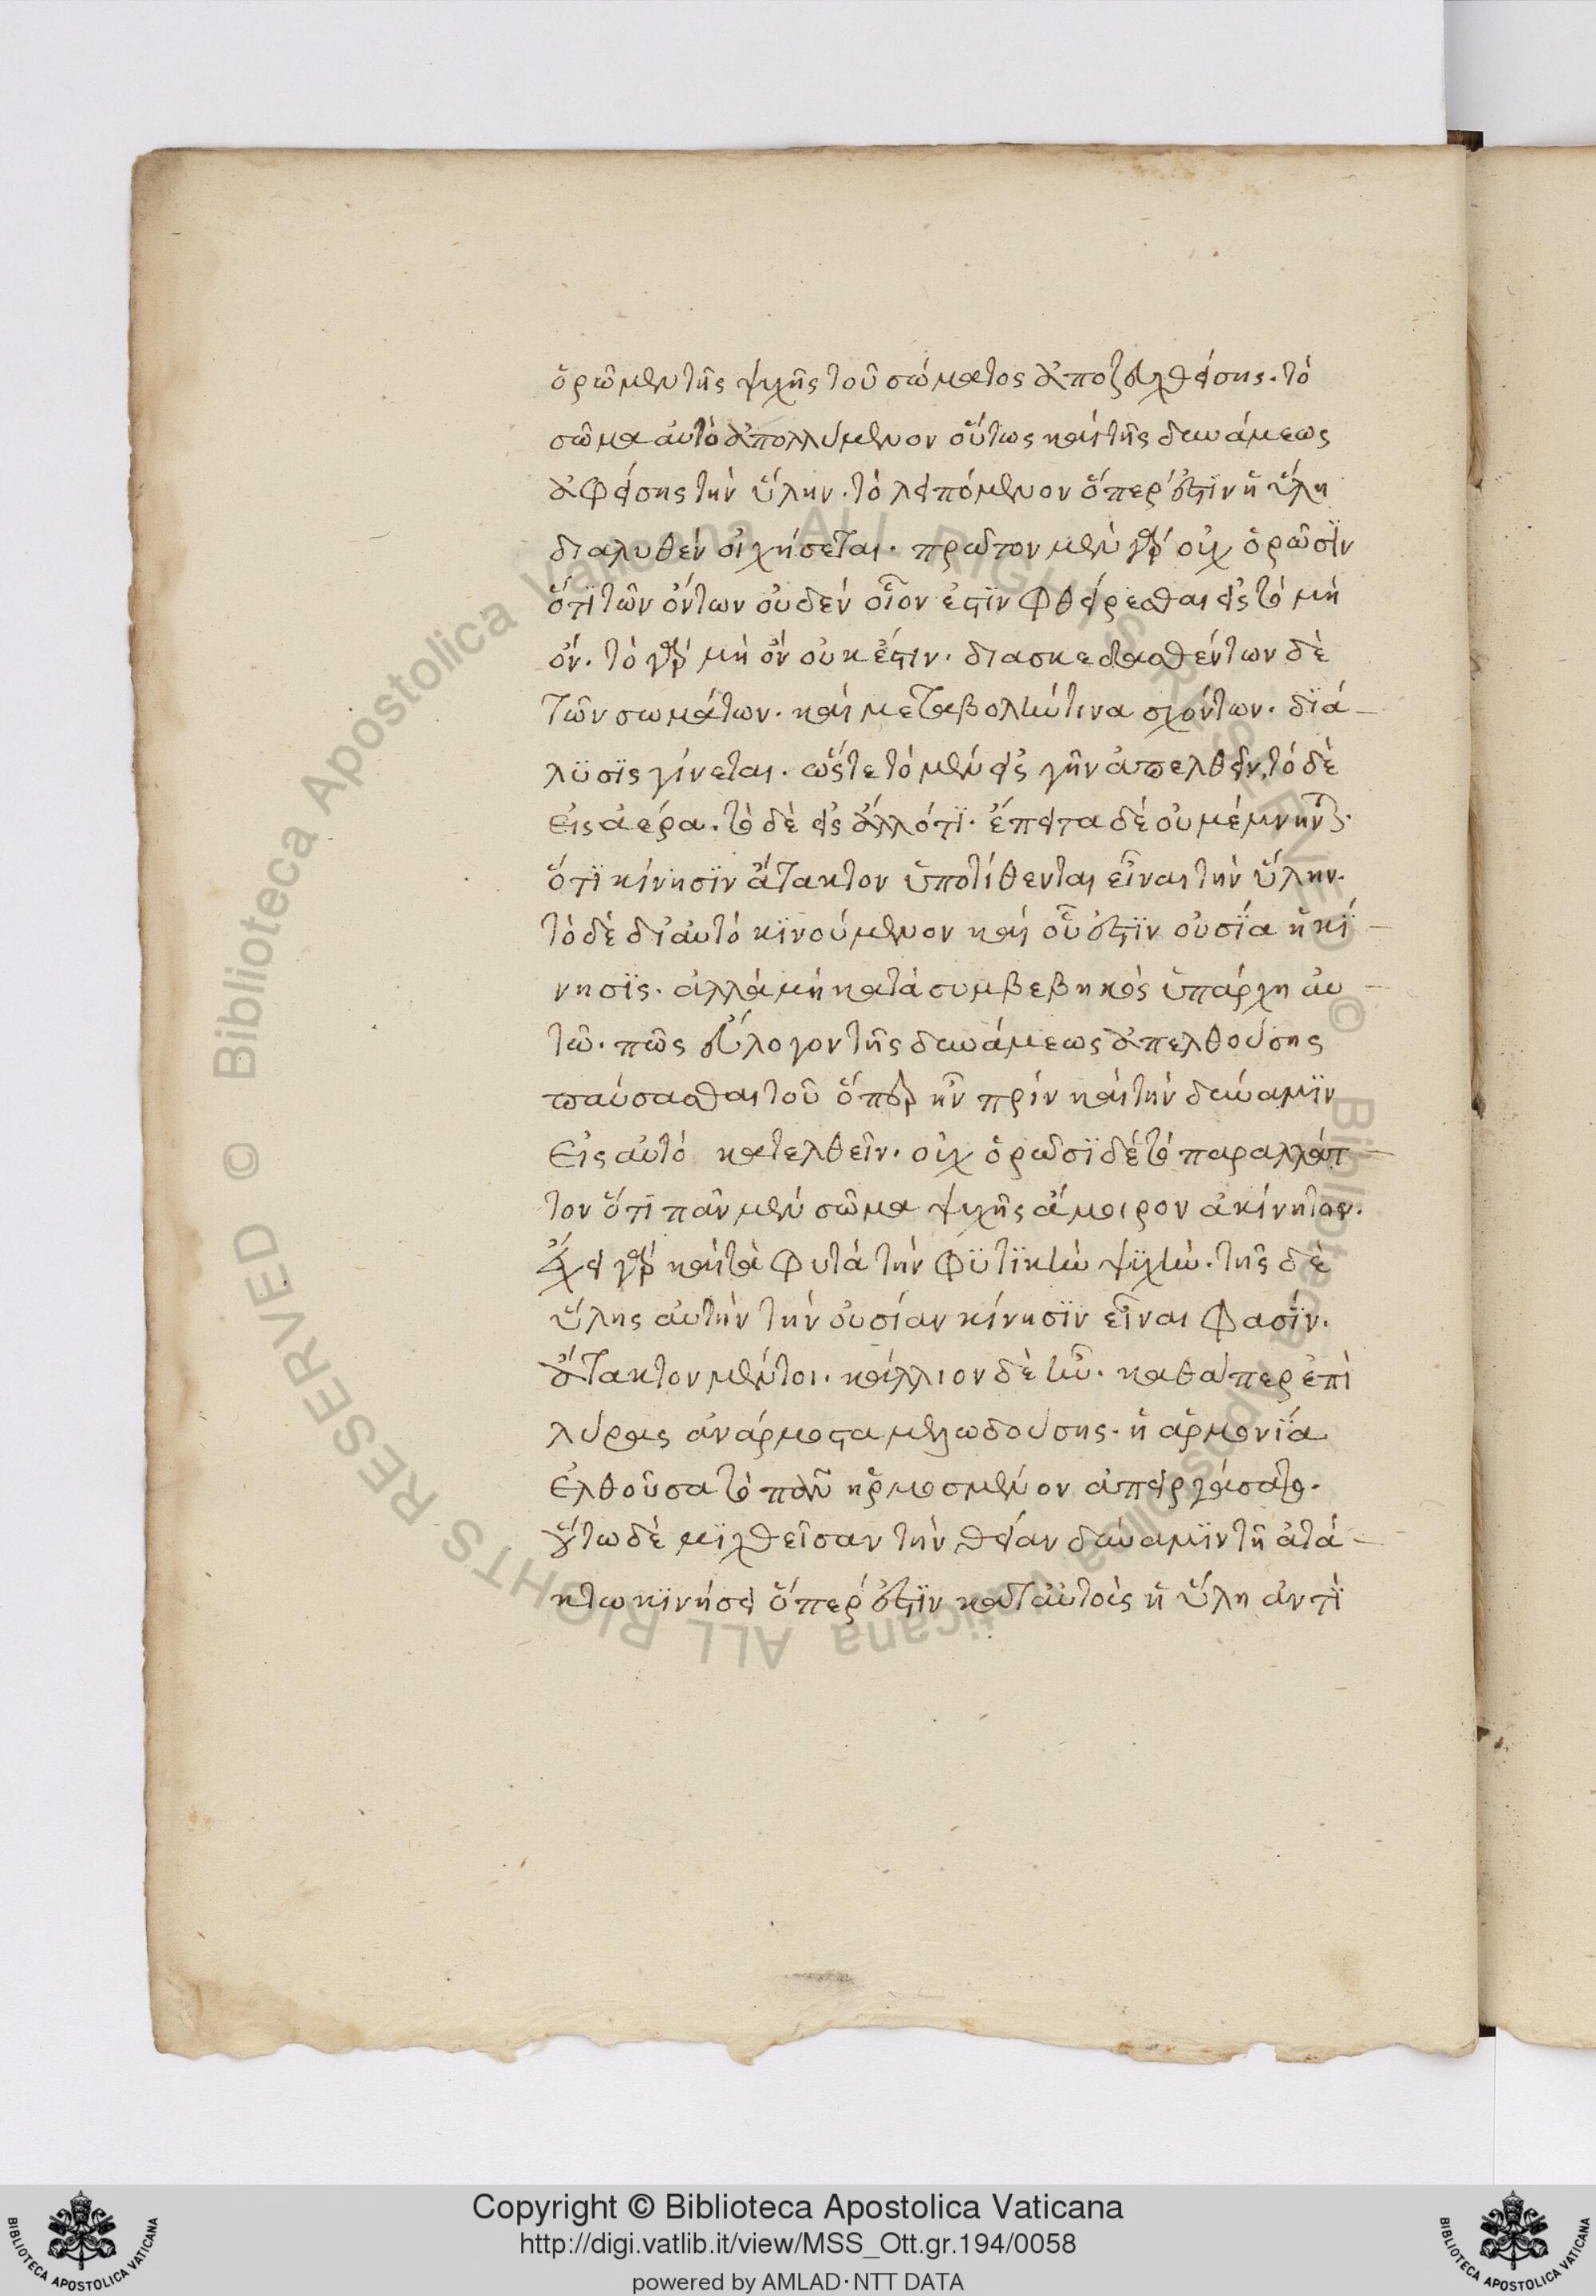 ὁρῶμεν τῆς ψυχῆς τοῦ σώματος ἀποζευχθείσης. τὸ
σῶμα αὐτὸ ἀπολλύμενον οὕτως καὶ τῆς δυνάμεως
ἀφείσης τὴν ὕλην. τὸ λειπόμενον ὅπερ ἐστὶν ἡ ὕλη
διαλυθὲν οἰχήσεται. πρῶτον μὲν γὰρ οὐχ ὁρῶσϊν
ὅτϊ τῶν ὄντων οὐδὲν οἷον ἐστϊν φθείρεσθαι εἰς τὸ μὴ
ὄν. τὸ γὰρ μὴ ὂν οὐκ ἔστιν. διασκεδασθέντων δὲ
τῶν σωμάτων. καὶ μεταβολὴν τινα σχόντων. δϊά-
λϋσϊς γίνεται. ὥστε τὸ μὲν εἰς γῆν ἀπελθεῖν, τὸ δὲ
εἰς ἀέρα. τὸ δὲ εἰς ἄλλό τϊ. ἔπειτα δὲ οὐ μέμνηνται.
ὅτϊ κίνησϊν ἄτακτον ὑποτίθενται εἶναι τὴν ὕλην.
τὸ δὲ δι' αὐτὸ κϊνούμενον καὶ οὗ ἐστϊν οὐσϊα ἡ κϊ-
νησϊς. ἀλλὰ μὴ κατὰ συμβεβηκὸς ὑπάρχη αὐ-
τῶ. πῶς εὔλογον τῆς δυνάμεως ἀπελθούσης
παύσασθαι τοῦ ὅπερ ἦν πρὶν καὶ τὴν δύναμϊν
εἰς αὐτὸ κατελθεῖν. οὐχ ὁρῶσϊ δὲ τὸ παραλλάτ-
τον ὅτϊ πᾶν μὲν σῶμα ψυχῆς ἄμοιρον ἀκίνητον.
ἔχει γὰρ καὶ τὰ φυτὰ τὴν φϋτϊκὴν ψϋχὴν. τῆς δὲ
ὕλης αὐτὴν τὴν οὐσίαν κίνησϊν εἶναι φασϊν.
ἄτακτον μέντοι. κάλλιον δὲ ἦν. καθάπερ ἐπὶ
λύρας ἀνάρμοστα μελωδούσης. ἡ ἁρμονϊα
ἐλθοῦσα τὸ πᾶν ἡρμοσμένον ἀπειργάσατο.
οὕτω δὲ μϊχθεῖσαν τὴν θείαν δύναμϊν τῆ ἀτά-
κτω κϊνήσει ὅπερ ἐστϊν κατ' αὐτοὺς ἡ ὕλη ἀντϊ
Copyright © Biblioteca Apostolica Vaticana
http://digi.vatlib.it/view/MSS_Ott.gr.194/0058
powered by AMLAD·NTT DATA
BIBLIOTECA APOSTOLICA VATICANA
BIBLIOTECA APOSTOLICA VATICANA
© Biblioteca Apostolica Vaticana ALL RIGHTS RESERVED
© Biblioteca Apostolica Vaticana ALL RIGHTS RESERVED